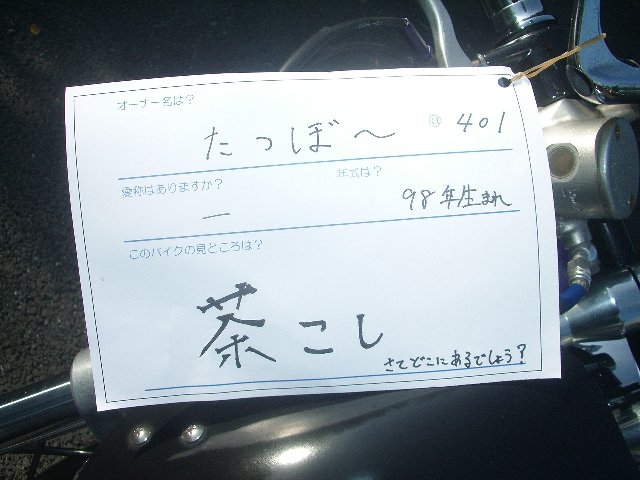 オーナー名は?
たつぼ〜 @ 401
愛称はありますか? 年式は?
ー 98年生まれ
このバイクの見どころは?
茶こし
さてどこにあるでしょう?